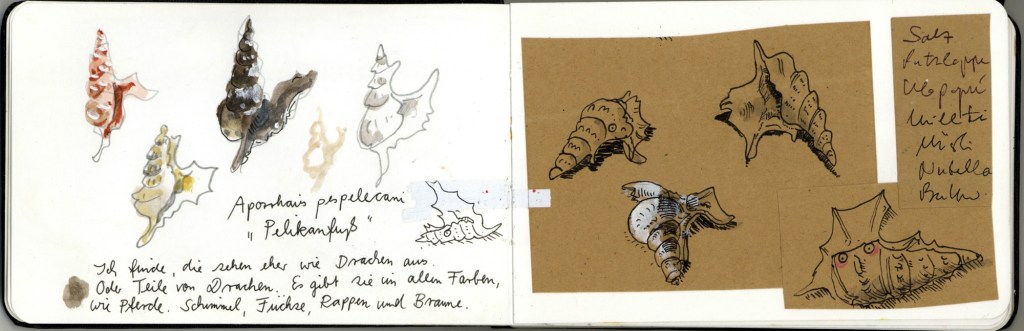 Aporrhais pespelecani
„Pelikanfuß"
Ich finde, die sehen eher wie Drachen aus.
Oder Teile von Drachen. Es gibt sie in allen Farben,
wie Pferde. Schimmel, Füchse, Rappen und Braune.
Salz
Putzlappen
Klopapier
Müsli
Nutella